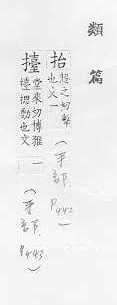 類篇
抬 超之切擊也文一 (手部 P442)
擡 堂來切博雅擡揌動也文一 (手部 P443)